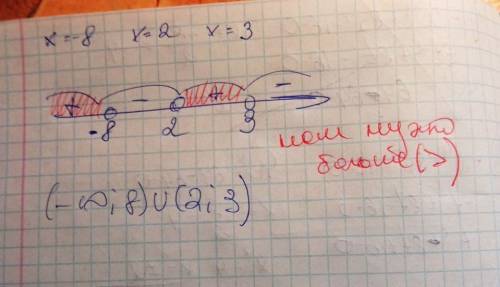 x=-8 x=2 x=3
+ - + -
-8 2 3
нам нужно
больше (>)
(-∞; 8) ∪ (2; 3)